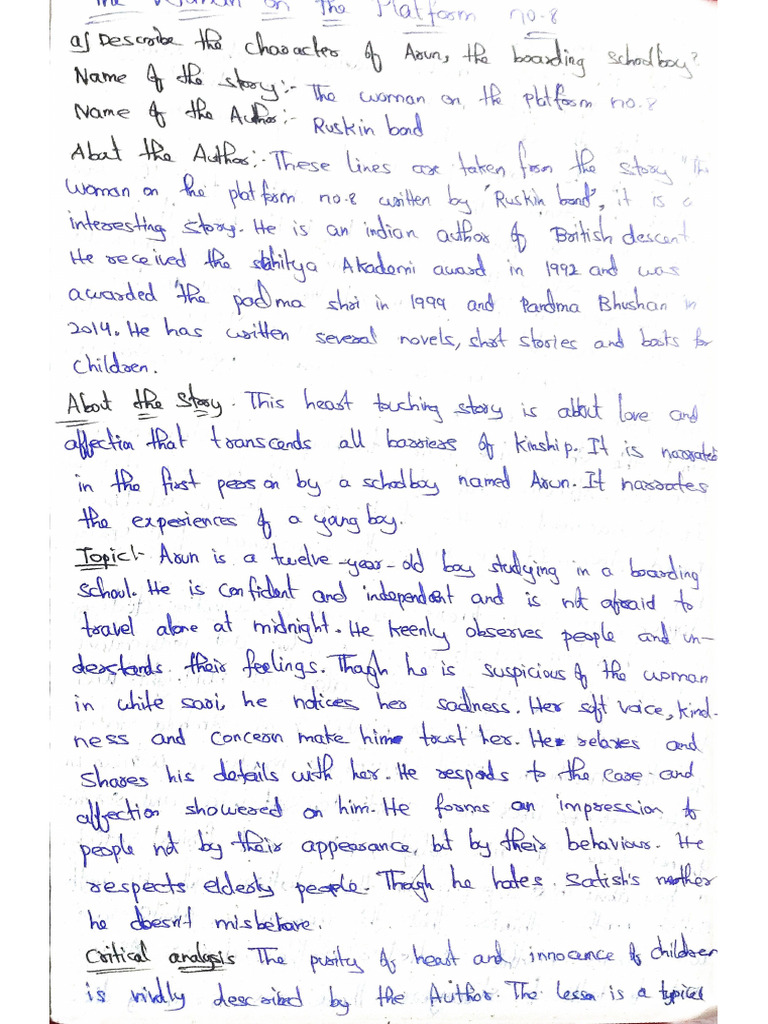 The Woman on The Platform no.8
a) Describe the character of Arun, the boarding schoolboy?
Name of the story:- The woman on the platform no.8
Name of the Author:- Ruskin bond
About the Author:- These lines are taken from the story "The
woman on the platform no.8 written by 'Ruskin bond', it is a
interesting story. He is an indian author of British descent.
He received the sahitya Akademi award in 1992 and was
awarded the padma shri in 1999 and Pardma Bhushan in
2014. He has written several novels, short stories and books for
children.
About the Story. This heart touching story is about love and
affection that transcends all barriers of kinship. It is narrates
in the first person by a schoolboy named Arun. It narrates
the experiences of a young boy.
Topic:- Arun is a twelve-year-old boy studying in a boarding
school. He is confident and independent and is not afraid to
travel alone at midnight. He keenly observes people and un-
derstands their feelings. Though he is suspicious of the woman
in white sari, he notices her sadness. Her soft voice, kind-
ness and concern make him trust her. He relaxes and
shares his details with her. He responds to the care and
affection showered on him. He forms an impression of
people not by their appearance, but by their behaviour. He
respects elderly people. Though he hates Satish's mother
he doesn't misbehave.
Critical analysis The purity of heart and innocence of children
is vividly described by the Author. The lesson is a typical